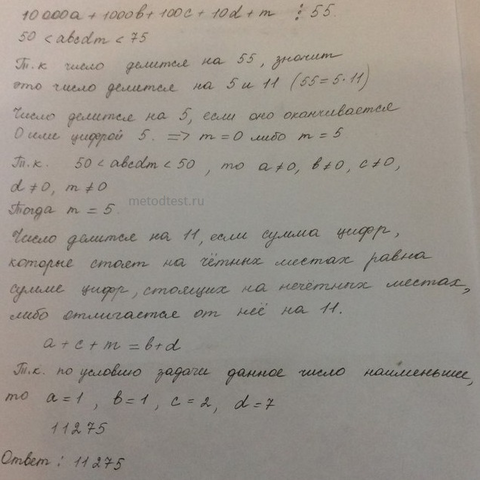 10 000a + 1000b + 100c + 10d + m ⋮ 55
50 < abcdm < 75
Т.к число делится на 55, значит
это число делится на 5 и 11 (55=5·11)
Число делится на 5, если оно оканчивается
0 или цифрой 5. => m=0 либо m=5
Т.к. 50 < abcdm < 50, то a≠0, b≠0, c≠0,
d≠0, m≠0
Тогда m = 5.
metodtest.ru
Число делится на 11, если сумма цифр,
которые стоят на чётных местах равна
сумме цифр, стоящих на нечётных местах,
либо отличается от неё на 11.
a + c + m = b + d
Т.к. по условию задачи данное число наименьшее,
то a=1, b=1, c=2, d=7
11275
Ответ: 11275